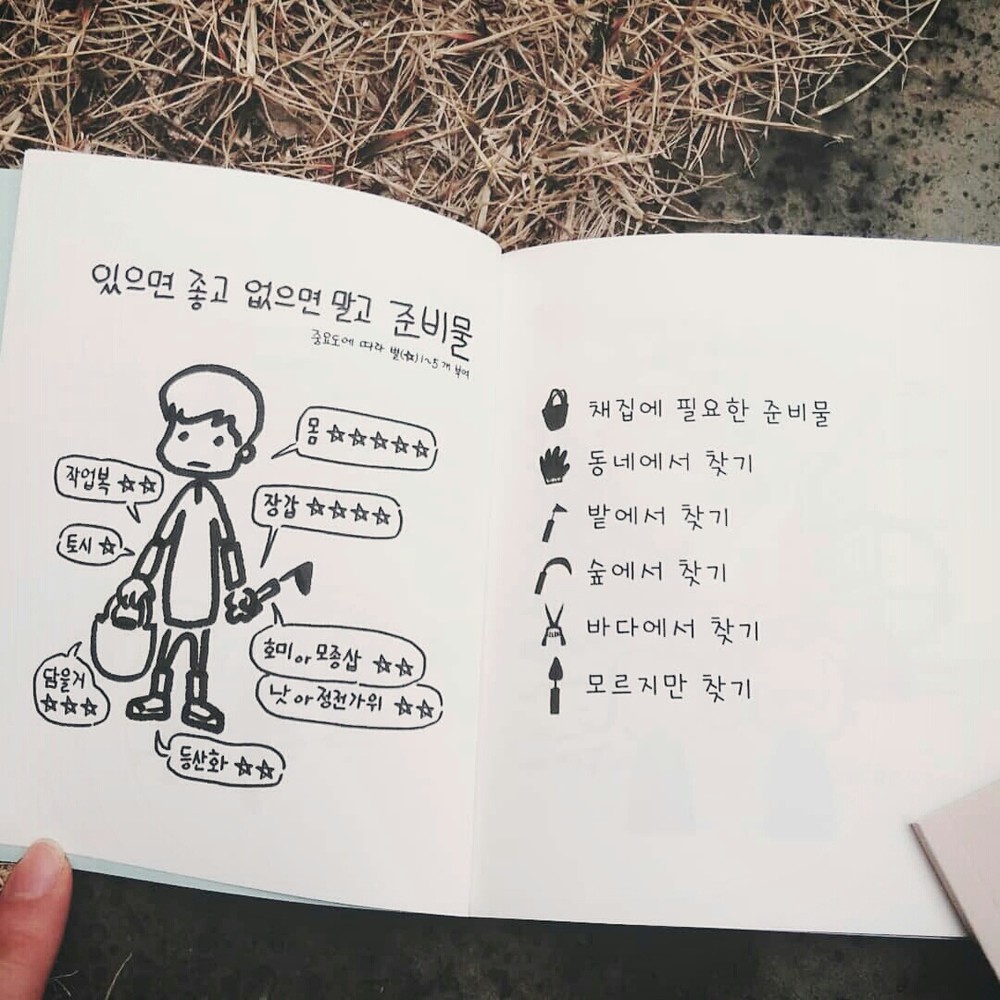 있으면 좋고 없으면 말고 준비물
중요도에 따라 별(☆)1~5개 부여
몸 ☆☆☆☆☆
작업복 ☆☆
장갑 ☆☆☆☆
토시 ☆
호미 or 모종삽 ☆☆
담을거
☆☆☆
낫 or 정전가위 ☆☆
등산화 ☆☆
채집에 필요한 준비물
동네에서 찾기
밭에서 찾기
숲에서 찾기
바다에서 찾기
모르지만 찾기